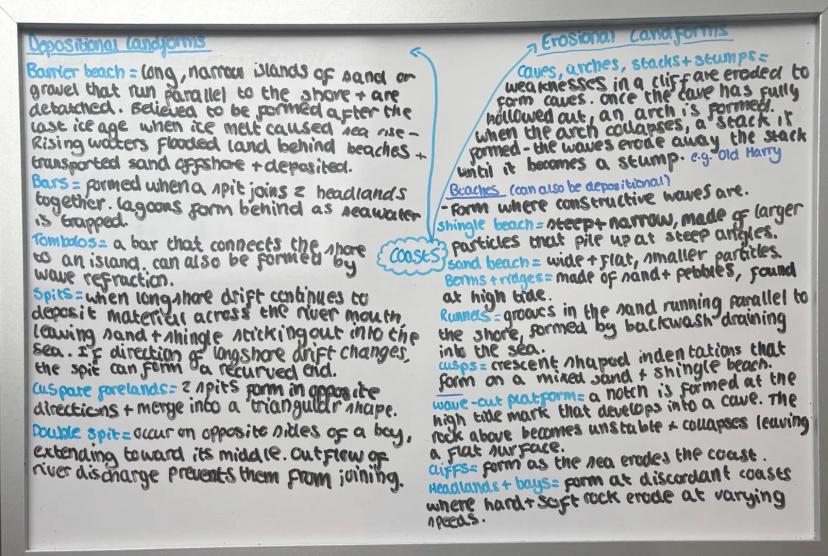 Depositional Landforms
Barrier beach = long, narrow islands of sand or
gravel that run parallel to the shore + are
detatched. Believed to be formed after the
last ice age when ice melt caused sea rise -
Rising waters flooded land behind beaches +
transported sand offshore + deposited.
Bars = formed when a spit joins 2 headlands
together. Lagoons form behind as seawater
is trapped.
Tombolos = a bar that connects the shore
to an island. can also be formed by
wave refraction.
Spits = when longshore drift continues to
deposit material across the river mouth
leaving sand + shingle sticking out into the
sea. If direction of longshore drift changes,
the spit can form a recurved end.
Cuspate forelands = 2 spits form in opposite
directions + merge into a triangular shape.
Double spit = occur on opposite sides of a bay,
extending toward its middle. Outflow of
river discharge prevents them from joining.
Coasts
Erosional Landforms
Caves, arches, stacks + stumps =
weaknesses in a cliff are eroded to
form caves. Once the cave has fully
hollowed out, an arch is formed.
When the arch collapses, a stack is
formed - the waves erode away the stack
until it becomes a stump. e.g. Old Harry
Beaches (can also be depositional)
- form where constructive waves are.
Shingle beach = steep + narrow, made of larger
particles that pile up at steep angles.
Sand beach = wide + flat, smaller particles.
Berms + ridges = made of sand + pebbles, found
at high tide.
Runnels = grooves in the sand running parallel to
the shore, formed by backwash draining
into the sea.
Cusps = crescent shaped indentations that
form on a mixed sand + shingle beach.
wave-cut platform = a notch is formed at the
high tide mark that develops into a cave. The
rock above becomes unstable + collapses leaving
a flat surface.
Cliffs = form as the sea erodes the coast.
Headlands + bays = form at discordant coasts
where hard + soft rock erode at varying
speeds.